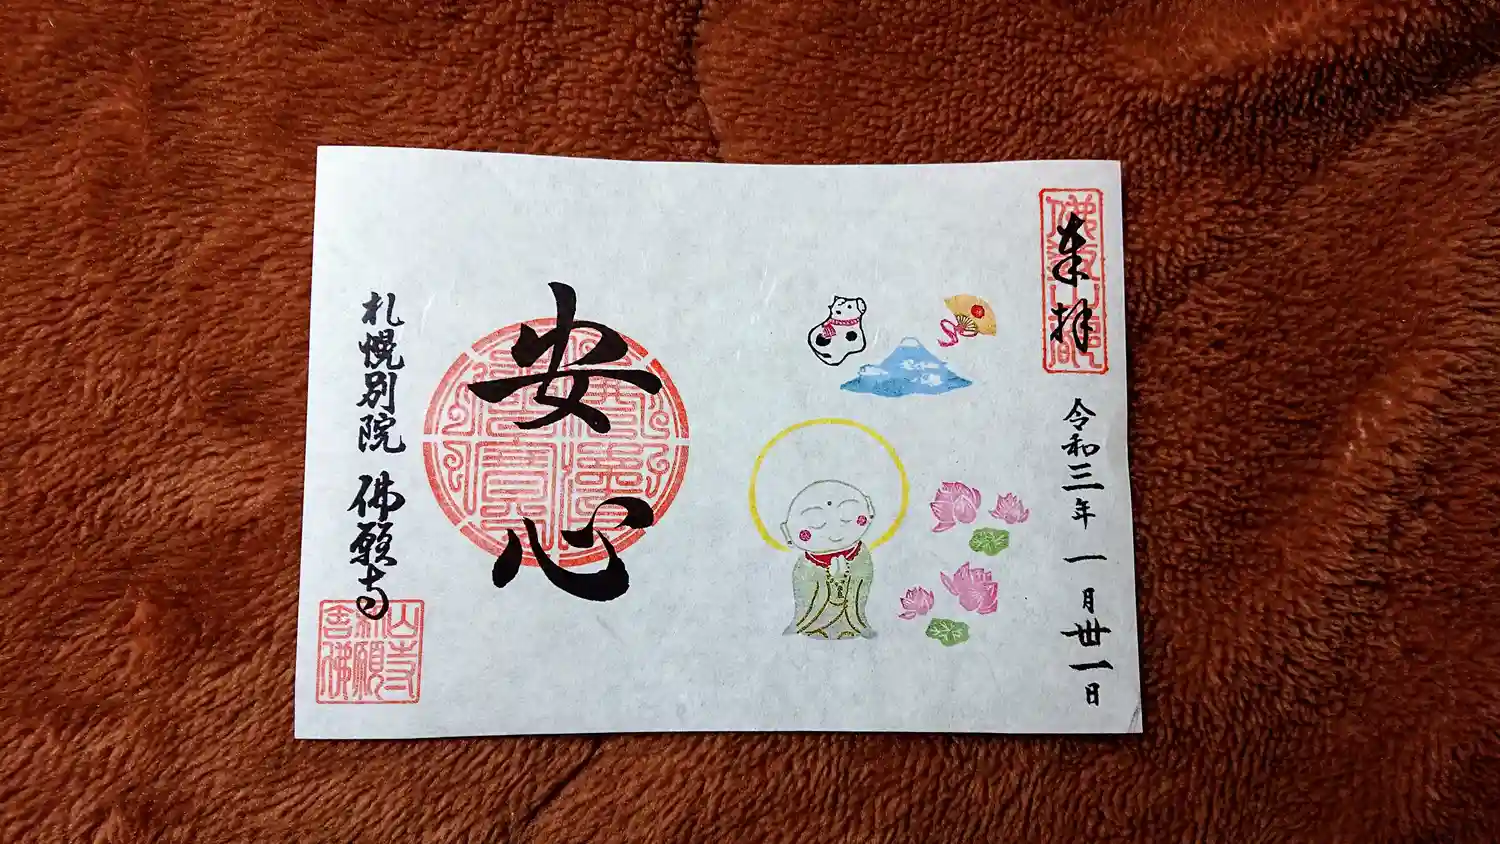 奉拝
令和三年 一月丗一日
安心
札幌別院 佛願寺